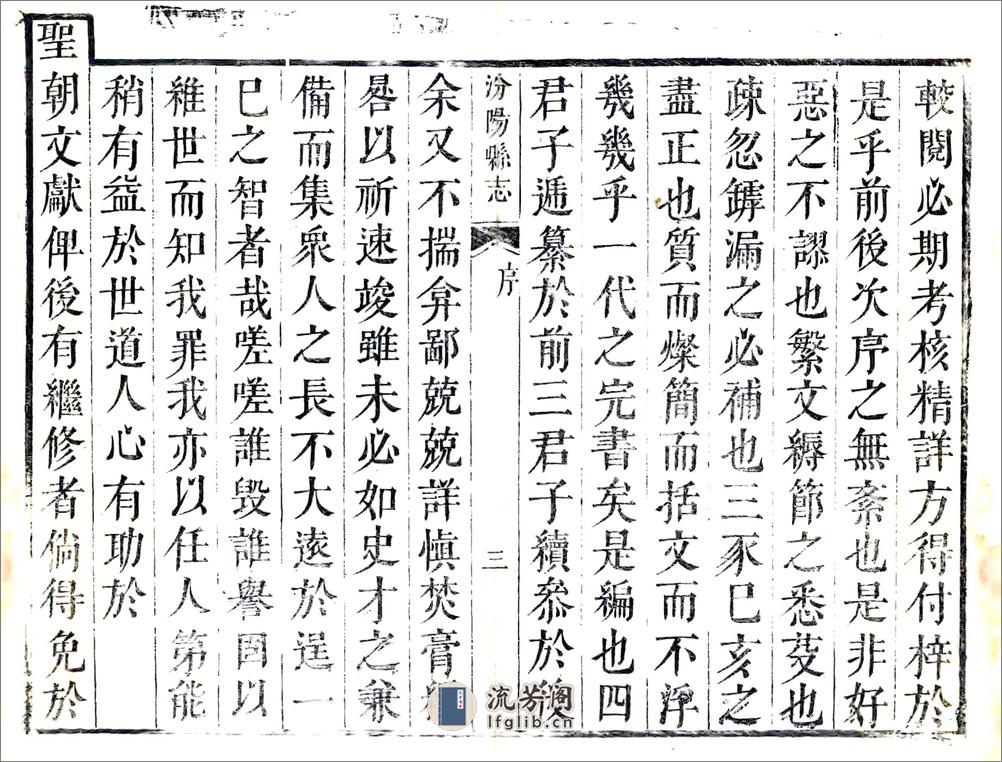 較閱必期考核精詳方得付梓於
是乎前後次序之無紊也是非好
惡之不謬也繁文縟節之悉芟也
疎忽鏬漏之必補也三豕巳亥之
盡正也質而燦簡而括文而不浮
幾幾乎一代之完書矣是編也四
君子遞纂於前三君子續叅於後
汾陽縣志 序 三
余又不揣弇鄙兢兢詳愼焚膏
晷以祈速竣雖未必如史才之兼
備而集衆人之長不大遠於逞一
巳之智者哉嗟嗟誰毀誰譽固以
維世而知我罪我亦以任人第能
稍有益於世道人心有功於
聖朝文獻俾後有繼修者倘得免於
流芳阁
lfglib.cn